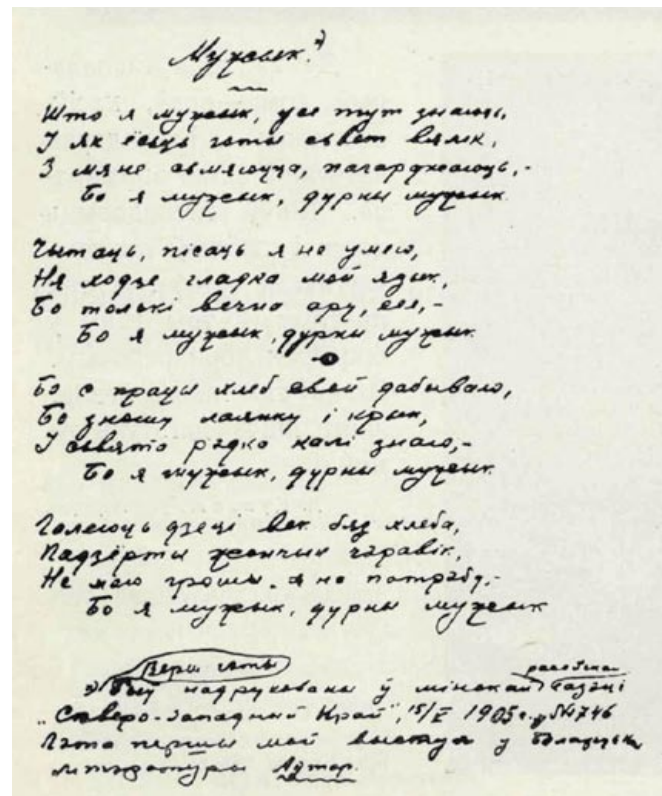 Мужык.*)
Што я мужык, усе тут знаюць,
І як ёсць гэты сьвет вялік,
З мяне сьмяюцца, пагарджаюць,-
Бо я мужык, дурны мужык.
Чытаць, пісаць я не умею,
Ня ходзе гладка мой язык,
Бо толькі вечна ару, сею,-
Бо я мужык, дурны мужык
Бо с працы хлеб свой дабываю,
Бо зношу лаянку і крык,
І сьвято рэдко калі знаю,-
Бо я мужык, дурны мужык
Галеюць дзеці век бяз хлеба,
Падзёрты жончын чаравік,
Не маю грошы на патрэбу,-
Бо я мужык, дурны мужык
Верш гэты расейскай
*) Быў надрукованы ў мінскай газэці
"Сѣверо-Западный Край", 15/V 1905 г. у № 746
Гэта першы мой выступ у беларускай
літэратуры Аўтор.